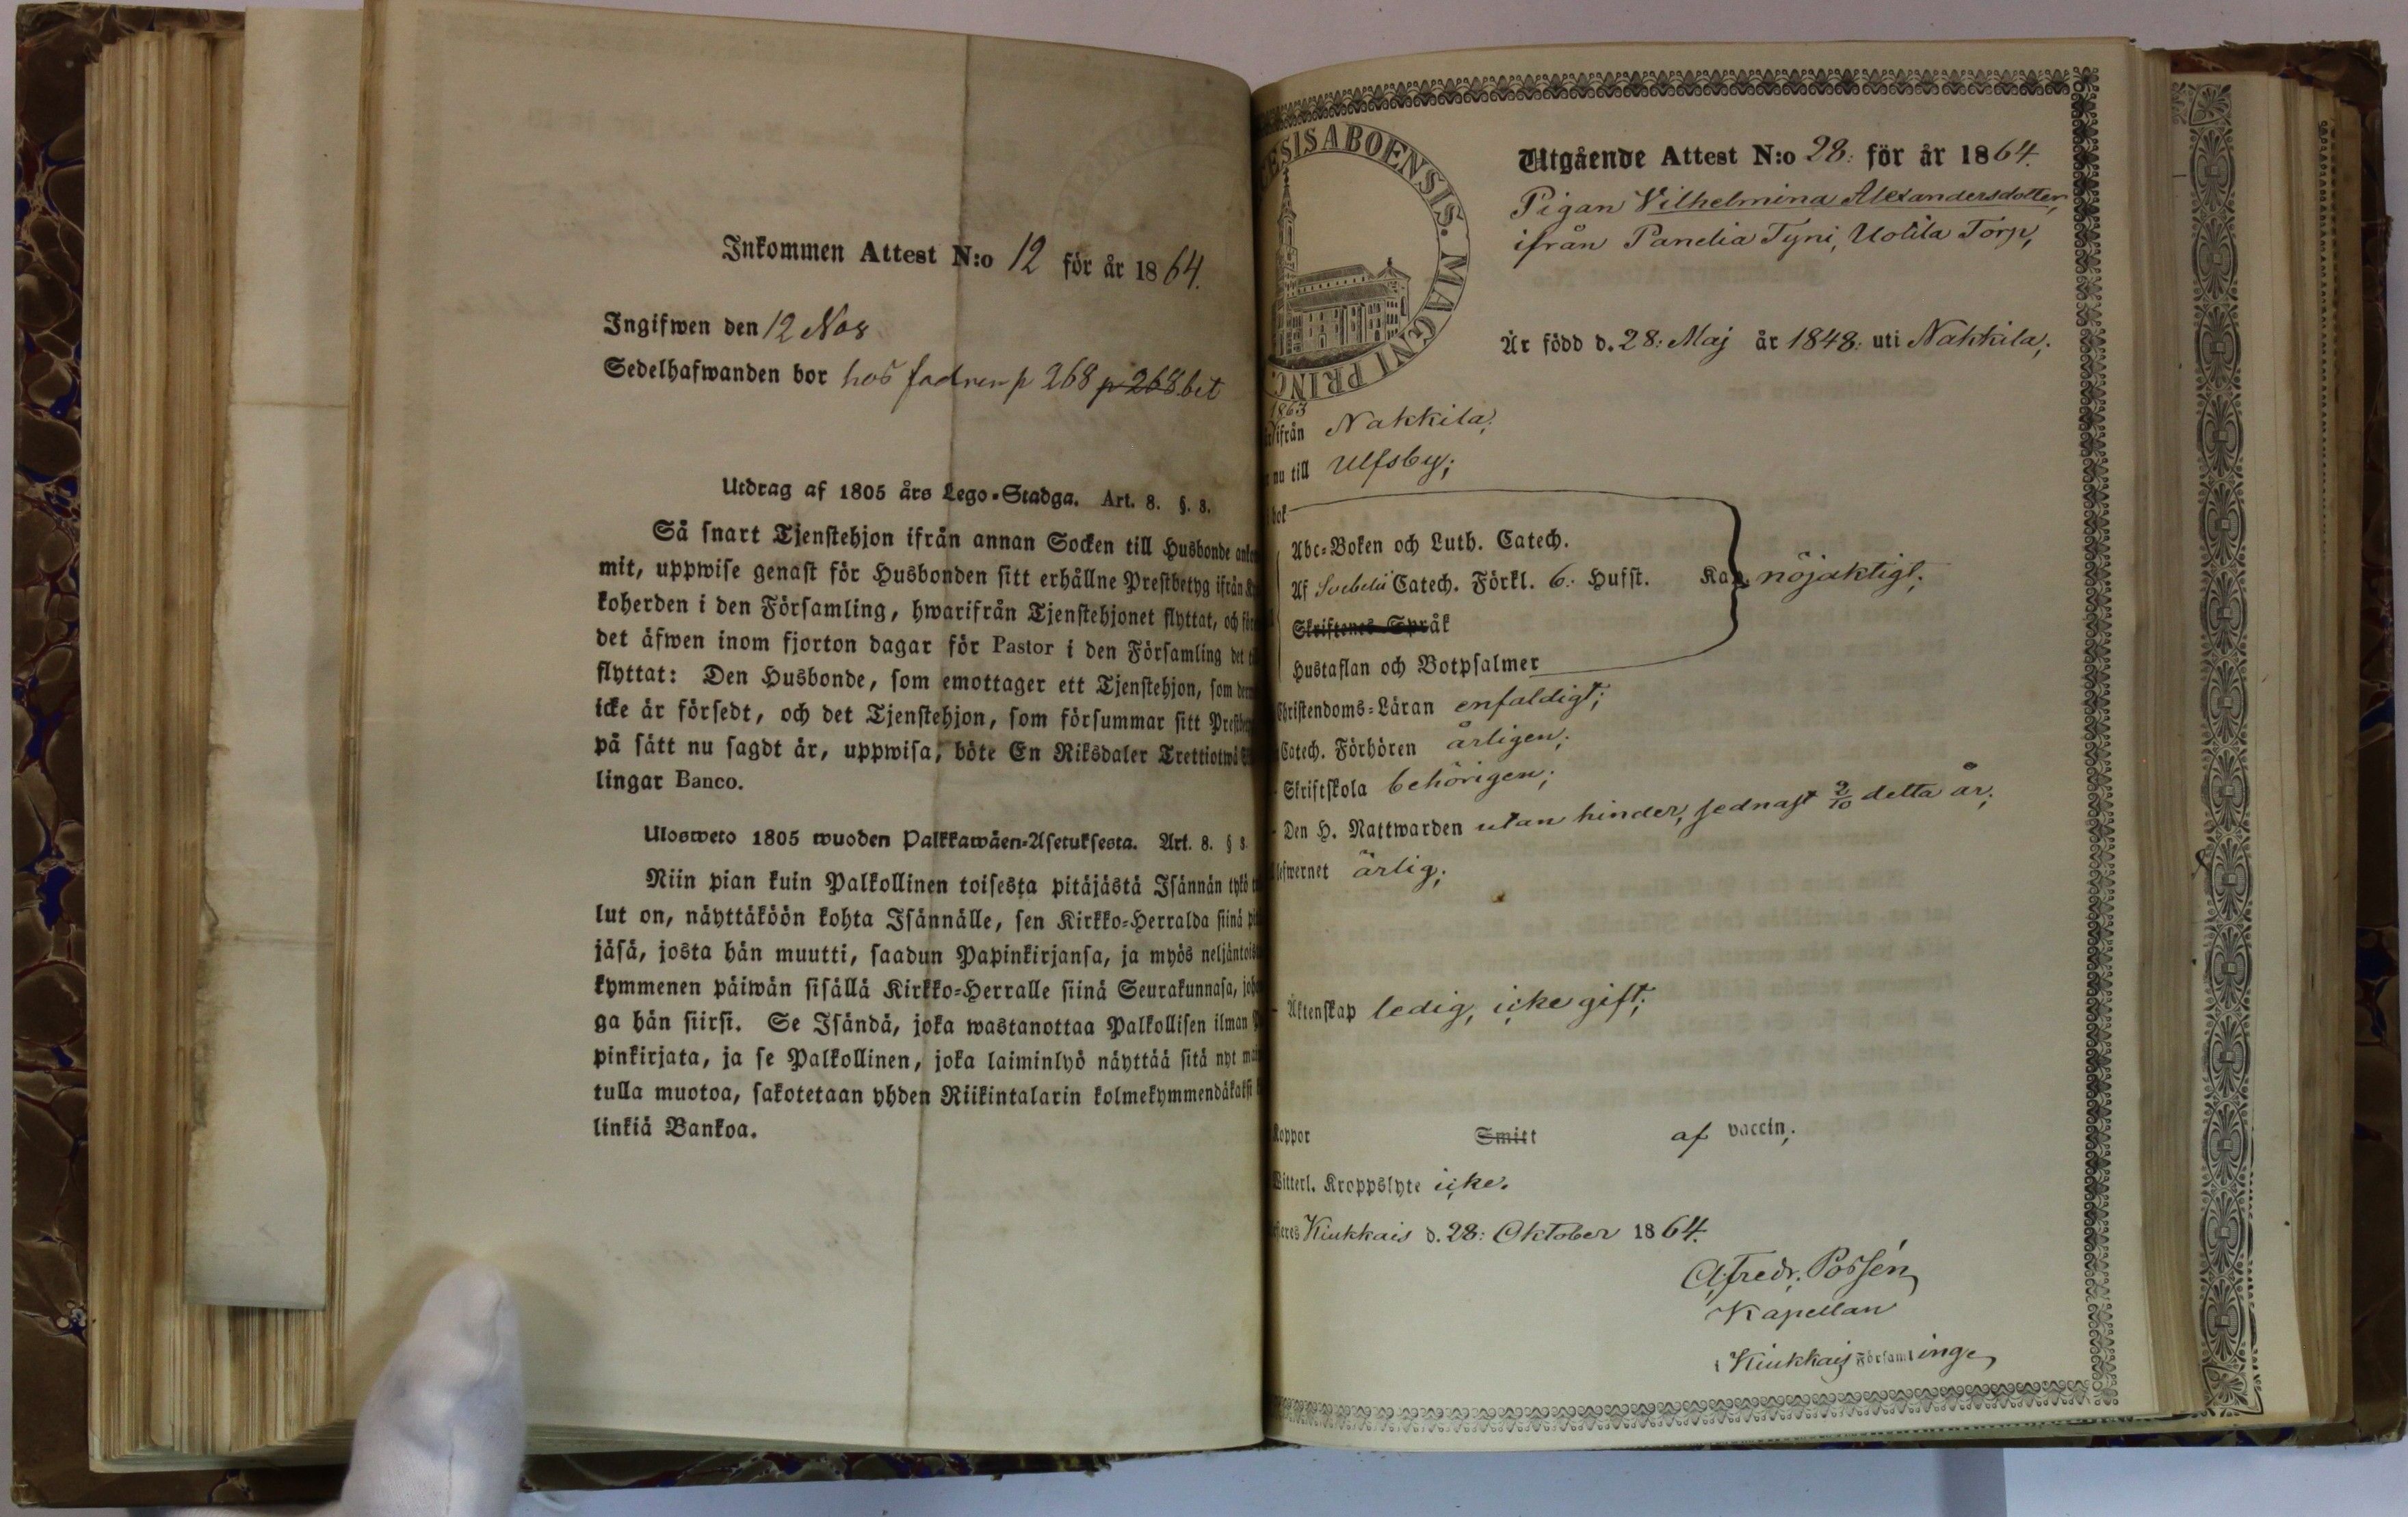 Inkommen Attest N:o 12 för år 1864.
Ingifwen den 12 Nov
Sedelhafwanden bor hos fadren p 268 p 268 bit
Utdrag af 1805 års Lego-Stadga. Art. 8. §. 8.
Så snart Tjenstehjon ifrån annan Socken till Husbonde
mit, uppwise genast för Husbonden sitt erhållne Prestbetyg ifrån
koherden i den Församling, hwarifrån Tjenstehjonet flyttat, och
det äfwen inom fjorton dagar för Pastor i den Församling det
flyttat: Den Husbonde, som emottager ett Tjenstehjon, som
icke är försedt, och det Tjenstehjon, som försummar sitt
på sätt nu sagdt är, uppwisa, böte En Riksdaler Trettiotwå
lingar Banco.
Ulosweto 1805 wuoden Palkkawäen-Asetuksesta. Art. 8. § 8
Niin pian kuin Palkollinen toisesta pitäjästä Isännän tykö
lut on, näyttäköön kohta Isännälle, sen Kirkko-Herralda siinä
jäsä, josta hän muutti, saadun Papinkirjansa, ja myös
kymmenen päiwän sisällä Kirkko-Herralle siinä Seurakunnasa,
ga hän siirsi. Se Isändä, joka wastanottaa Palkollisen ilman
pinkirjata, ja se Palkollinen, joka laiminlyö näyttää sitä nyt
tulla muotoa, sakotetaan yhden Riikintalarin kolmekymmendäkaksi
linkiä Bankoa.
ABOENSIS. MAGNI PRINC.
Utgående Attest N:o 28: för år 1864.
Pigan Vilhelmina Alexandersdotter,
ifrån Panelia Tyni, Uotila Torp,
Är född d. 28: Maj år 1848: uti Nakkila;
1863
ifrån Nakkila;
nu till Ulfsby;
bok
Abc-Boken och Luth. Catech.
Af Svebelii Catech. Förkl. 6: Husst. Kap. nöjaktigt;
Skriftenes Språk
Hustaflan och Botpsalmer
Christendoms-Läran enfaldigt;
Catech. Förhören årligen;
Skriftskola behörigen;
Den H. Nattwarden utan hinder, sednast 2/10 detta år;
lefwernet ärlig;
Äktenskap ledig, icke gift;
Koppor Smitt af vaccin;
Witterl. Kroppslyte icke.
Kiukkais d. 28: Oktober 1864.
Kapellan
i Kiukkais Församlinge